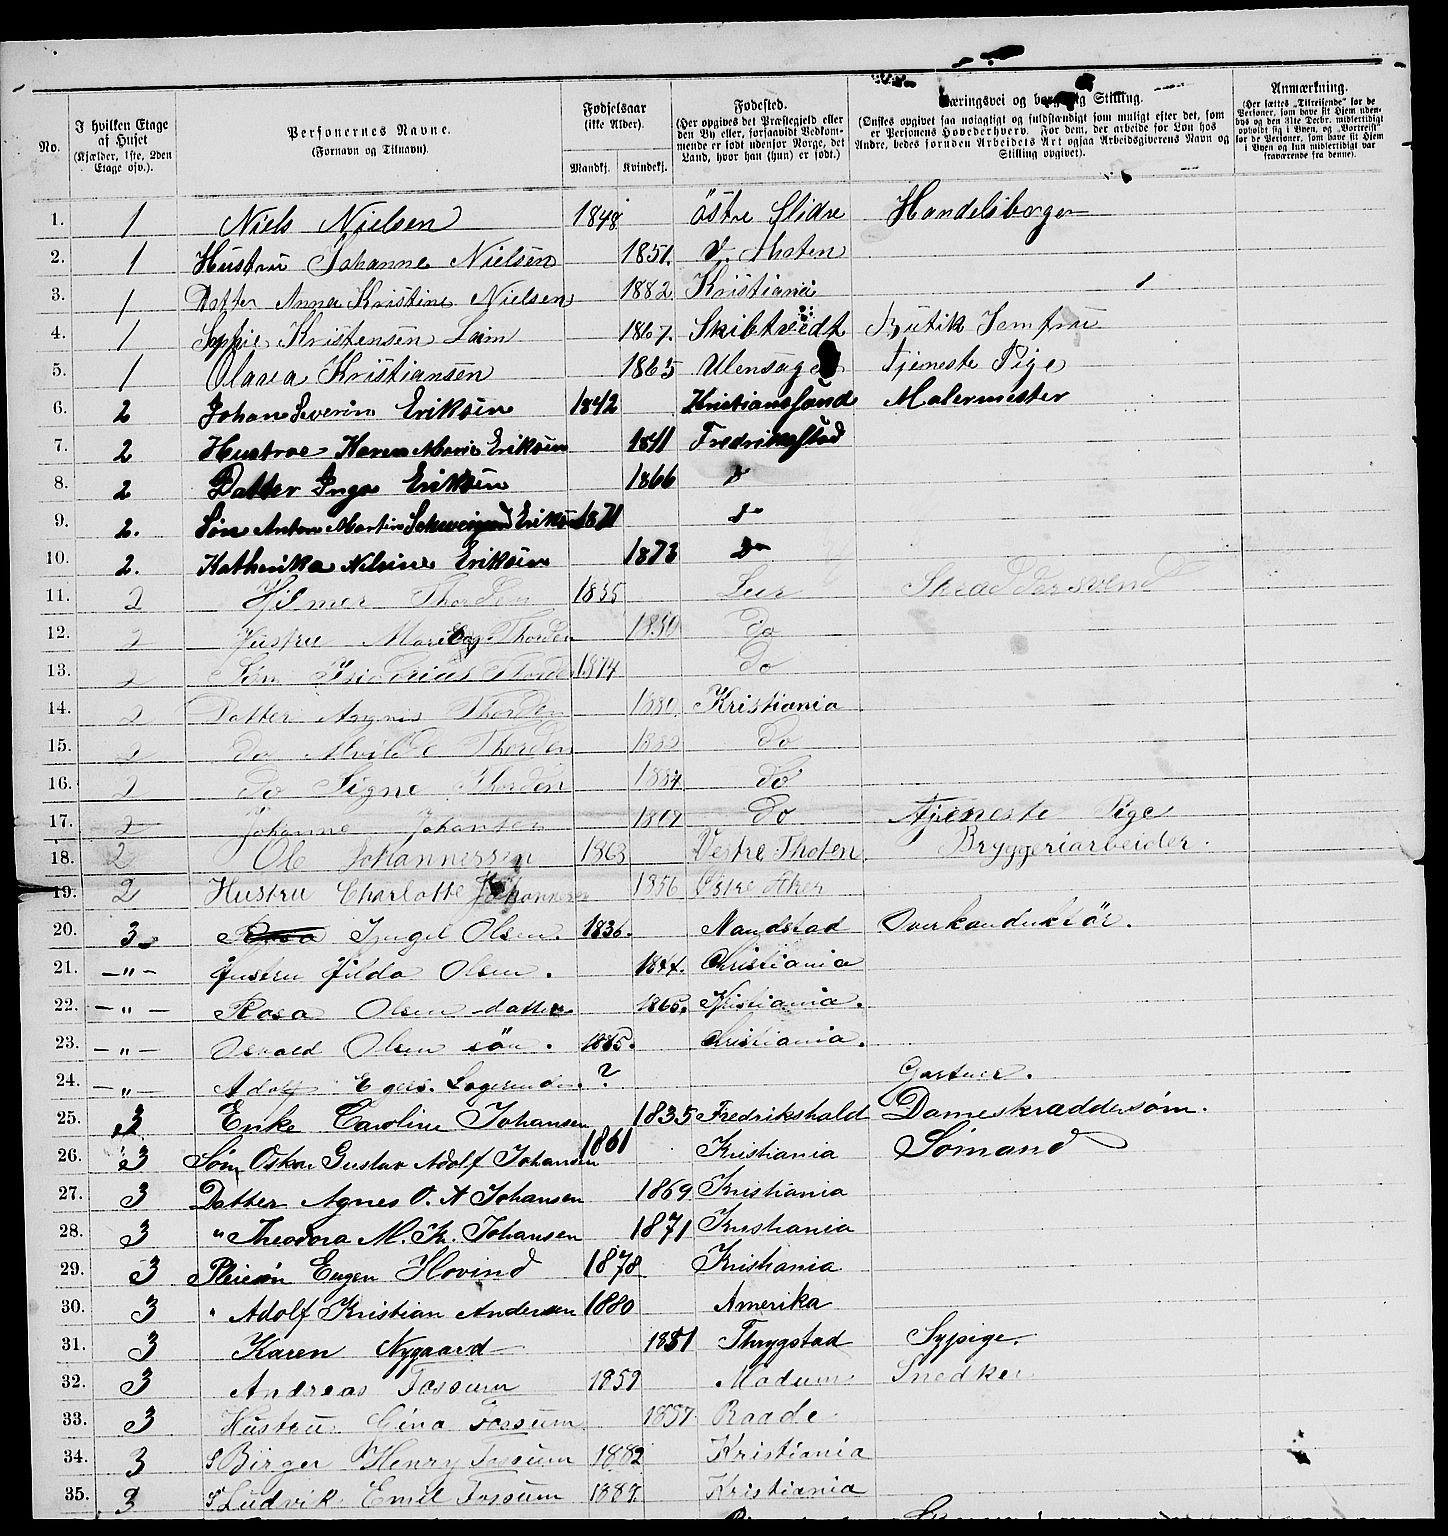 No.
I hvilken Etage af Huset (Kjælder, 1ste, 2den Etage osv.).
Personernes Navne. (Fornavn og Tilnavn).
Fødselsaar (ikke Alder).
Mandkj. Kvindekj.
Fødested. (Her opgives det Præstegjeld eller den By eller, forsaavidt Vedkommende er født udenfor Norge, det Land, hvor han (hun) er født.)
Næringsvei og borgerlig Stilling. (Ønskes opgivet saa nøiagtigt og fuldstændigt som muligt efter det, som er Personens Hovederhverv. For dem, der arbeide for Løn hos Andre, bedes foruden Arbeidets Art ogsaa Arbeidsgiverens Navn og Stilling opgivet).
Anmærkning. (Her sættes „Tilreisende" for de Personer, som have sit Hjem udenbys og den 31te Decbr. midlertidigt opholdt sig i Byen, og „Bortreist" for de Personer, som have sit Hjem i Byen og kun midlertidigt var fraværende fra denne).
1. 1 Niels Nielsen 1848 Östre Slidre Handelsborger
2. 1 Hustru Johanne Nielsen 1851. V. Thoten
3. 1 Datter Anna Kristine Nielsen 1882 Kristiania
4. 1 Sophie Kristensen 1867. Skibtvedt Butik Jomfru
5. 1 Olava Kristiansen 1865 Ulensager Tjeneste Pige
6. 2 Johan Severin Eriksen 1842 Kristiansand Malermester
7. 2 Hustroe Karen Marie Eriksen 1841 Fredrikstad
8. 2 Datter Inga Eriksen 1866 Do
9. 2. Søn Anton Martin Eriksen 1871 Do
10. 2. Katherika Nilsine Eriksen 1873 Do
11. 2 Hilmer Thordén 1855 Skræddersvend
12. 2 Hustru Thordén 1850 Do
13. 2 Søn Thordén 1874 Do
14. 2 Datter Agnis Thordén 1880 Kristiania
15. 2 Do Thordén Do
16. 2 Do Signe Thordén 1884 Do
17. 2 Johanne Johansen Do Tjeneste Pige
18. 2 Ole Johannessen 1863 Vestre Thoten Bryggeriarbeider.
19. 2 Hustru Charlotte Johannesen 1856 Østre Aker
20. 3 Olsen. 1836. Overkonduktör.
21. — " — Hustru Hilda Olsen. 1844. Christiania
22. — " — Rosa Olsen datter 1865. Kristiania.
23. — " — Osvald Olsen sön. Christiania.
24. — " — Adolf ? Gartner.
25. 3 Enke Caroline Johansen 1835 Fredrikshald Dameskræddersøm.
26. 3 Søn Oskar Gustav Adolf Johansen 1861 Kristiania Sømand
27. 3 Datter Agnes O. A Johansen 1869 Kristiania
28. 3 " Theodora M. K. Johansen 1871 Kristiania
29. 3 Pleiesøn Eugen Hovind 1878 Kristiania
30. 3 " Adolf Kristian Andersen 1880 Amerika
31. 3 Karen Nygaard 1851 Thrygstad Sypige.
32. 3 Andreas Fossum 1859 Modum Snedker
33. 3 Hustru Gina Fossum 1857 Raade
34. 3 S Birger Henry Fossum 1882 Kristiania
35. 3 S Ludvik Emil Fossum Kristiania